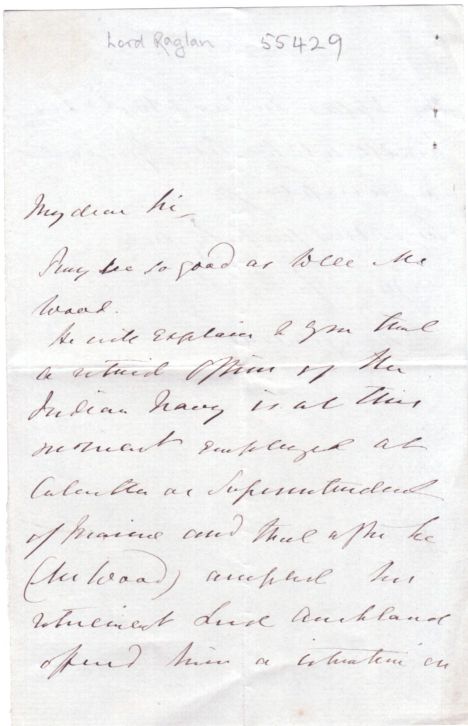 Lord Raglan 55429
My dear Sir
Pray be so good as to see Mr
Wood.
He will explain to you that
a retired officer of the
Indian Navy is at this
moment employed at
Calcutta as Superintendent
of Marine and that after he
(Mr Wood) accepted his
retirement Lord Auckland
offered him a situation in